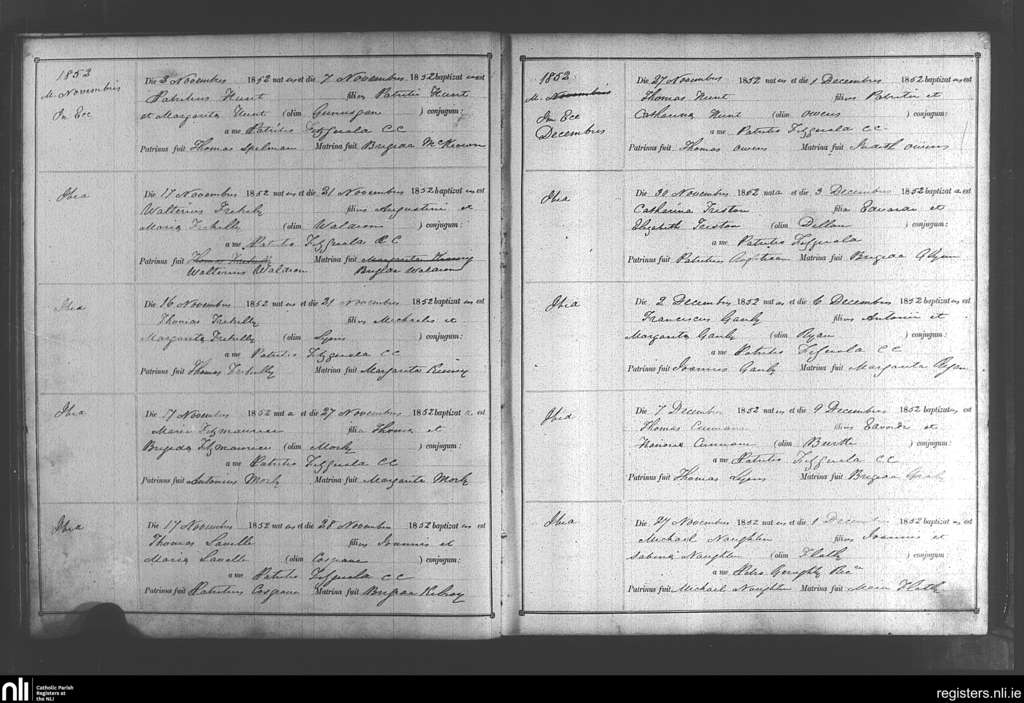 1852
M. Novembris
In Ecc
Die 3 Novembris 1852 natus et die 7 Novembris 1852 baptizatus est
Patritius Hunt filius Patritii Hunt
et Margarita Hunt (olim ) conjugum:
a me Patritio Fizguala CC
Patrinus fuit Thomas Spelman Matrina fuit Brigida McKeown
Ibid
Die 17 Novembris 1852 natus et die 21 Novembris 1852 baptizatus est
Walterius filius Augustini et
Maria (olim Waldron ) conjugum:
a me Patritio Fizguala CC
Patrinus fuit Thomas Matrina fuit Margarita
Walterius Waldron Brigida Waldron
Ibid
Die 16 Novembris 1852 natus et die 21 Novembris 1852 baptizatus est
Thomas filius Michaelis et
Margarita (olim Lyons ) conjugum:
a me Patritio Fizguala CC
Patrinus fuit Thomas Matrina fuit Margarita
Ibid
Die 17 Novembris 1852 nat a et die 27 Novembris 1852 baptizat a est
Maria Fitzmaurice filia Thoma et
Brigida Fitzmaurice (olim Mork ) conjugum:
a me Patritio Fizguala CC
Patrinus fuit Antonius Mork Matrina fuit Margarita Mork
Ibid
Die 17 Novembris 1852 natus et die 28 Novembris 1852 baptizatus est
Thomas Lavelle filius Joannis et
Maria Lavelle (olim Cosgrave ) conjugum:
a me Patritio Fizguala CC
Patrinus fuit Patritius Cosgrave Matrina fuit Brigida Kilroy
1852
M. Novembris
In Ecc
Decembris
Die 27 Novembris 1852 natus et die 1 Decembris 1852 baptizatus est
Thomas Hunt filius Patritii et
Catherina Hunt (olim Owens ) conjugum:
a me Patritio Fizguala CC
Patrinus fuit Thomas Owens Matrina fuit Judith Owens
Ibid
Die 30 Novembris 1852 nata et die 3 Decembris 1852 baptizat a est
Catharina Freston filia Edvardi et
Elizabeth Freston (olim Dillon ) conjugum:
a me Patritio Fizguala
Patrinus fuit Patritius Matrina fuit Brigida Glynn
Ibid
Die 2 Decembris 1852 natus et die 6 Decembris 1852 baptizatus est
Franciscus Gauly filius Antonii et
Margarita Gauly (olim Ryan ) conjugum:
a me Patritio Fizguala CC
Patrinus fuit Joannis Gauly Matrina fuit Margarita Ryan
Ibid
Die 7 Decembris 1852 natus et die 9 Decembris 1852 baptizatus est
Thomas filius Edvardi et
Honora (olim Burke ) conjugum:
a me Patritio Fizguala CC
Patrinus fuit Thomas Lyons Matrina fuit Brigida
Ibid
Die 27 Novembris 1852 natus et die 1 Decembris 1852 baptizatus est
Michael Naughten filius Joannis et
Sabina Naughten (olim Flatly ) conjugum
a me Petro Geraghty
Patrinus fuit Michael Naughten Matrina fuit Maria Flatly
nli Catholic Parish
Registers at
the NLI
registers.nli.ie